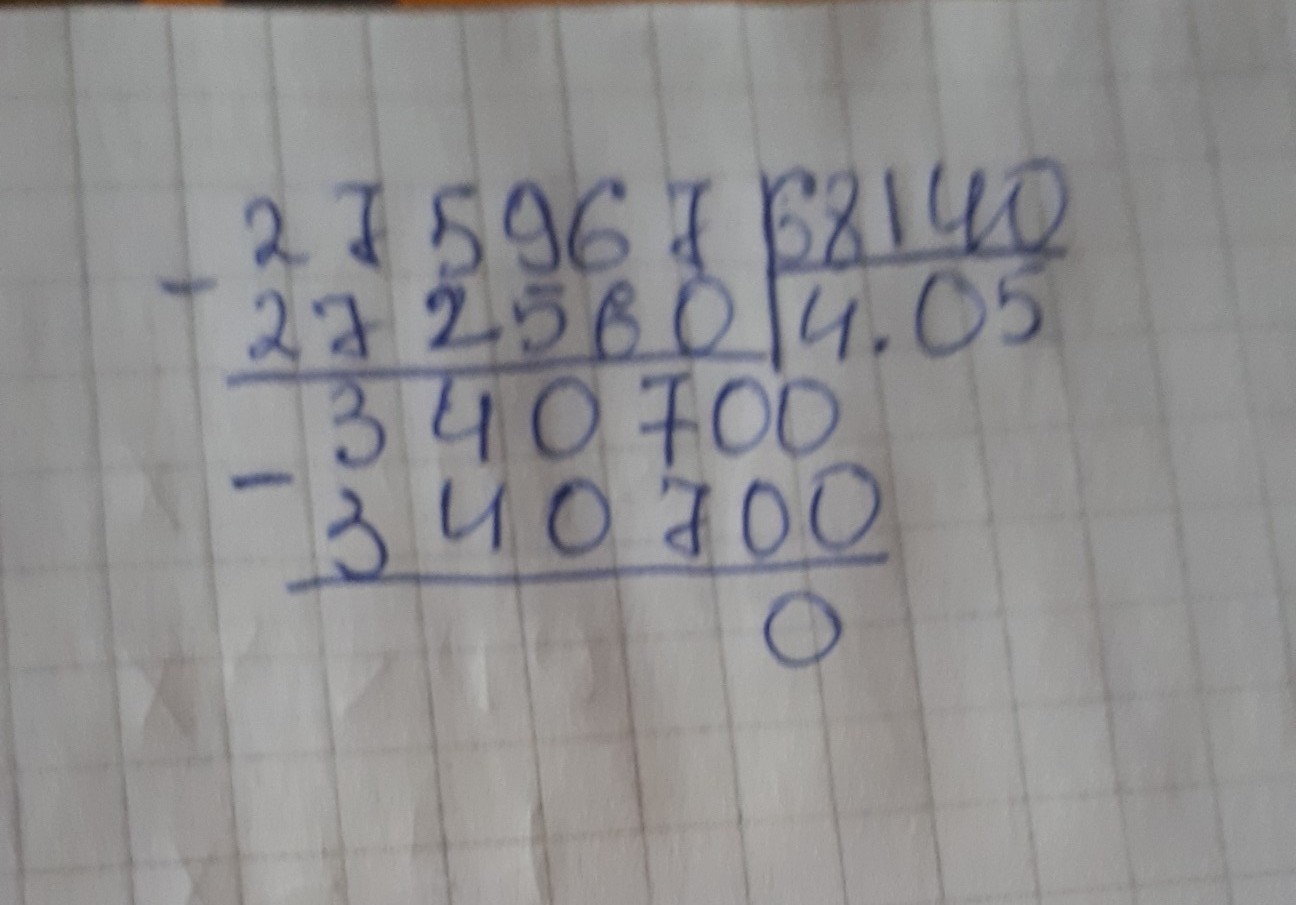 275967 68140
- 272560 4.05
340700
- 340700
0